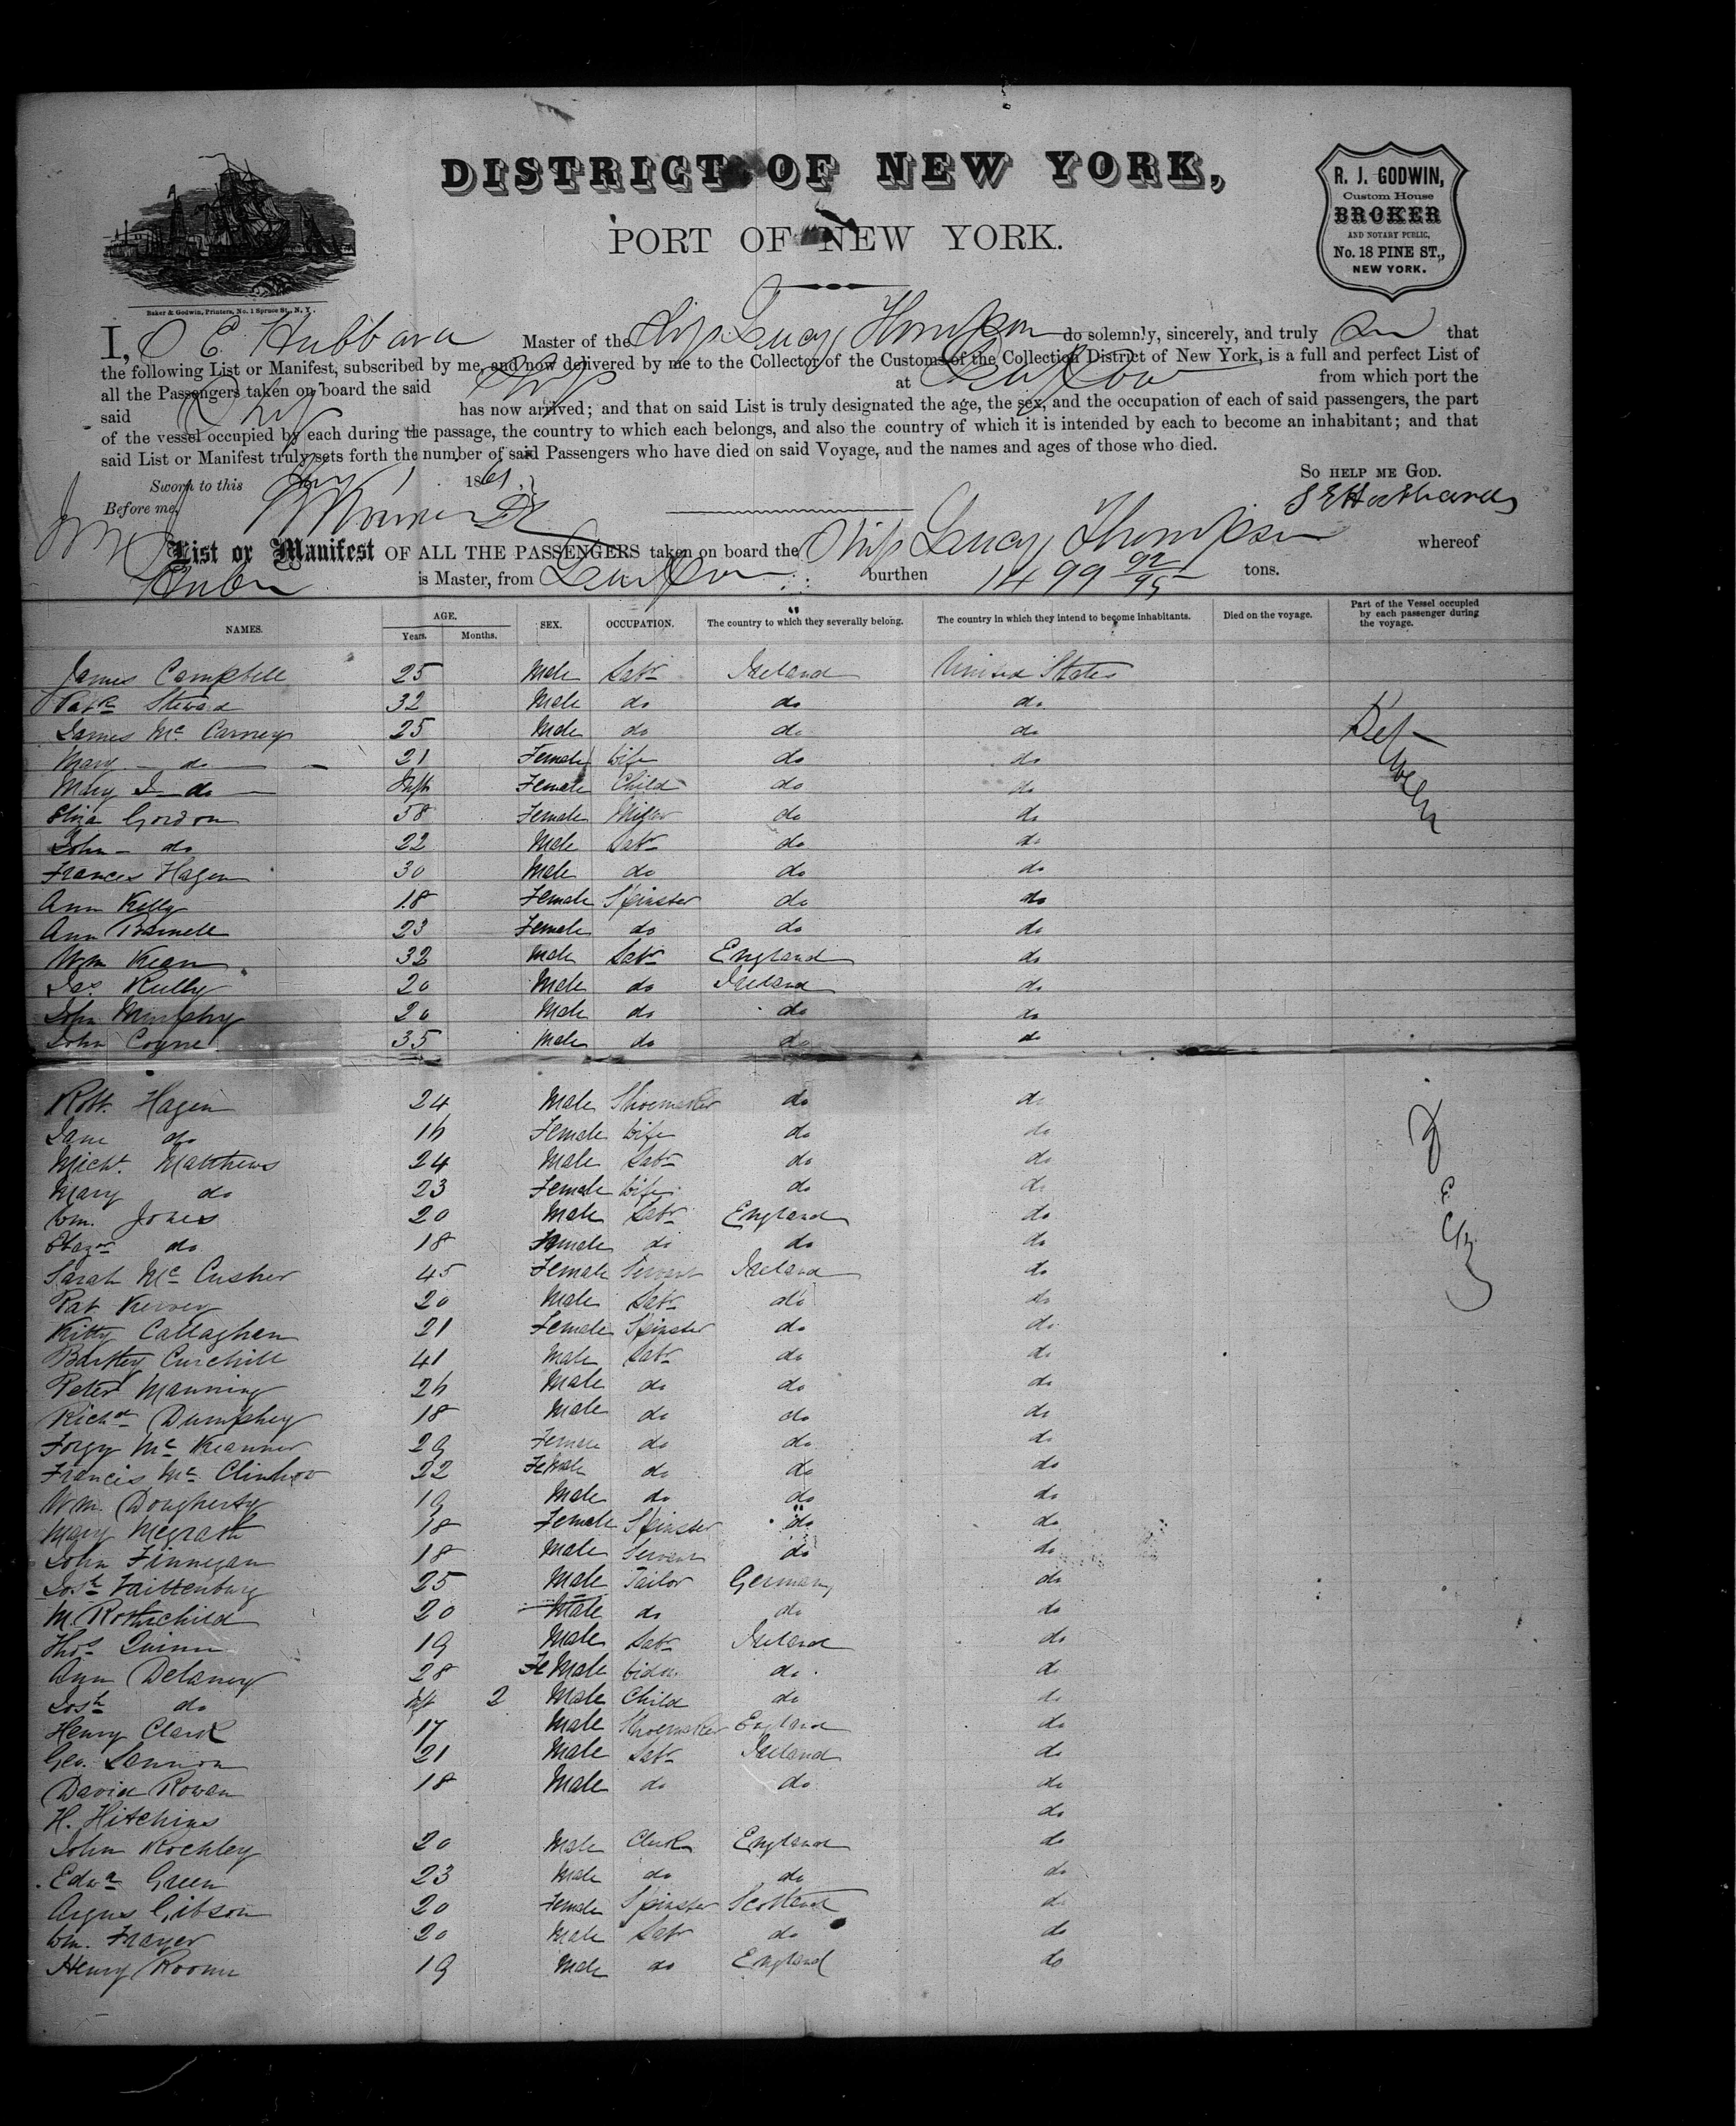 DISTRICT OF NEW YORK,
PORT OF NEW YORK.
R. J. GODWIN,
Custom House
BROKER
AND NOTARY PUBLIC,
No. 18 PINE ST.,
NEW YORK.
Baker & Godwin, Printers, No. 1 Spruce St., N. Y.
I, S E Hubbard Master of the Ship Lucy Thompson do solemnly, sincerely, and truly that
the following List or Manifest, subscribed by me, and now delivered by me to the Collector of the Customs of the Collection District of New York, is a full and perfect List of
all the Passengers taken on board the said Ship at from which port the
said Ship has now arrived; and that on said List is truly designated the age, the sex, and the occupation of each of said passengers, the part
of the vessel occupied by each during the passage, the country to which each belongs, and also the country of which it is intended by each to become an inhabitant; and that
said List or Manifest truly sets forth the number of said Passengers who have died on said Voyage, and the names and ages of those who died.
So HELP ME GOD.
Sworn to this 1 1861.
Before me, S E Hubbard
List or Manifest OF ALL THE PASSENGERS taken on board the Ship Lucy Thompson whereof
is Master, from burthen 1499 92/95 tons.
NAMES. AGE. Years. Months. SEX. OCCUPATION. The country to which they severally belong. The country in which they intend to become inhabitants. Died on the voyage. Part of the Vessel occupied by each passenger during the voyage.
James Campbell 25 Male Labr Ireland United States
Patk Steward 32 Male do do do
James Mc Carney 25 Male do do do
Mary do 21 Female Wife do do
Mary J do Inft Female Child do do
Eliza Gordon 58 Female do do
John do 22 Male Labr do do
Frances Hagen 30 Male do do do
Ann Kelly 18 Female Spinster do do
Ann 23 Female do do do
Wm Kean 32 Male Labr England do
Jas. Kelly 20 Male do Ireland do
John Murphy 20 Male do do do
John Coyne 35 Male do do do
Between
Deck
Robt. Hagen 24 Male Shoemaker do do
Jane do 16 Female Wife do do
Michl. Matthews 24 Male Labr do do
Mary do 23 Female Wife do do
Wm. Jones 20 Male Labr England do
do 18 Female do do do
Sarah Mc Cusker 45 Female Servant Ireland do
Pat 20 Male Labr do do
Kitty Callaghan 21 Female Spinster do do
41 Male Labr do do
Peter Manning 26 Male do do do
Richd Dumphey 18 Male do do do
Mc 29 Female do do do
Francis Mc 22 Female do do do
Wm. Dougherty 19 Male do do do
Mary Megrath 18 Female Spinster do do
John Finnegan 18 Male Servant do do
Josh 25 Male Tailor Germany do
M. Rothschild 20 Male do do do
Thos Quinn 19 Male Labr Ireland do
Ann Delaney 28 FeMale do do
Josh do Inft 2 Male Child do do
Henry Clark 17 Male Shoemaker England do
Geo. Lennon 21 Male Labr Ireland do
David Rowan 18 Male do do do
H. Hitchins do
John Rochley 20 Male Clerk England do
Edwd Green 23 Male do do do
Gibson 20 Female Spinster Scotland do
Wm. Frayer 20 Male Labr do do
Henry 19 Male do England do